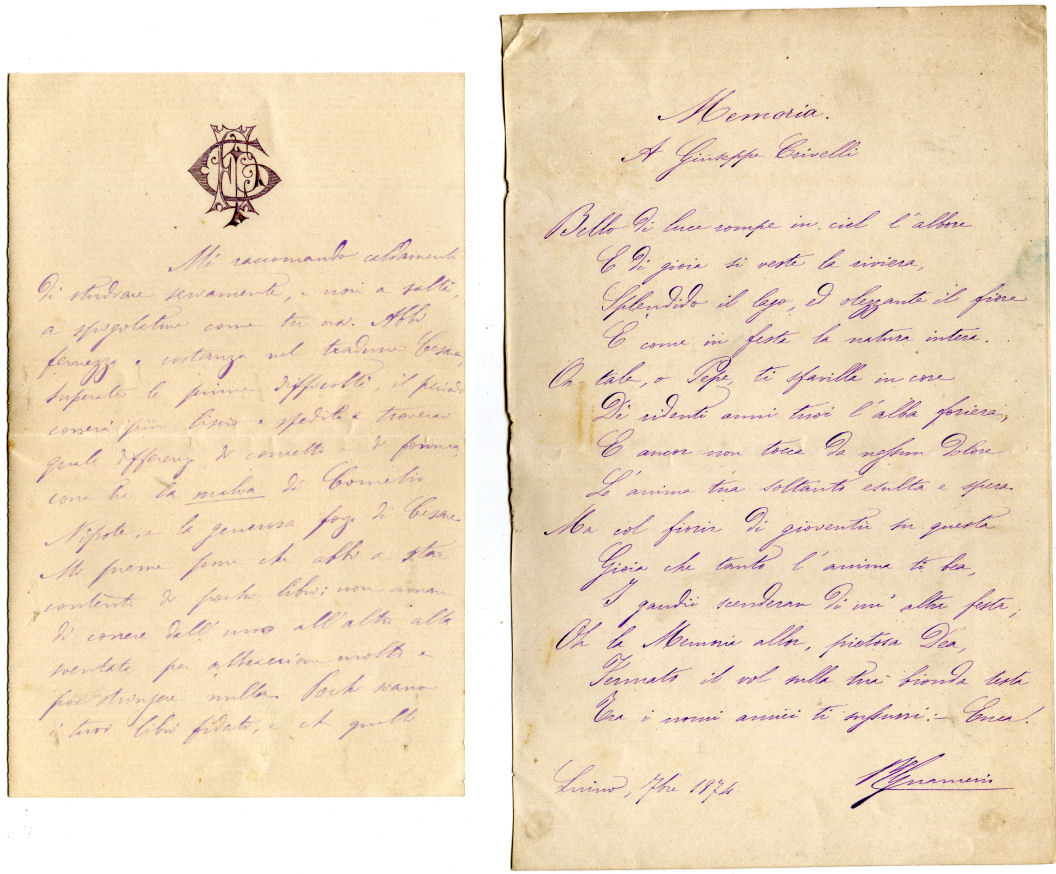 Mi raccomando caldamente
di studiare seriamente, e non a salti,
a spigolature come tu usi. Abbi
fermezza e costanza nel tradurre Cesare,
superate le prime difficoltà, il periodo
correrà più liscio e spedito e troverai
quale differenza di concetto e di forma,
corra tra la malva di Cornelio
Nipote, e la generosa forza di Cesare
Mi preme pure che abbi a star
contento di pochi libri; non amare
di correre dall'uno all'altro alla
sventata per abbracciar molto e
poi stringere nulla. Pochi siano
i tuoi libri fidati, e che quelli
Memoria.
A Giuseppe Crivelli
Bello di luce rompe in ciel l'albore
E di gioia si veste la riviera,
Splendido il lago, ed olezzante il fiore
E come in festa la natura intera.
Or tale, o Pepe, ti sfavilla in core
Dè ridenti anni tuoi l'alba foriera,
E ancor non tocca da nessun dolore
Lè anima tua soltanto esulta e spera.
Ma col fiorir di gioventù su questa
Gioia che tanto l'anima ti bea,
I gaudii scenderan di un' altra festa;
Oh la Memoria allor, pietosa Dea,
Fermato il vol sulla tua bionda testa
Tra i nomi amici ti sussurri: - Enea!
Luino, 7bre 1874